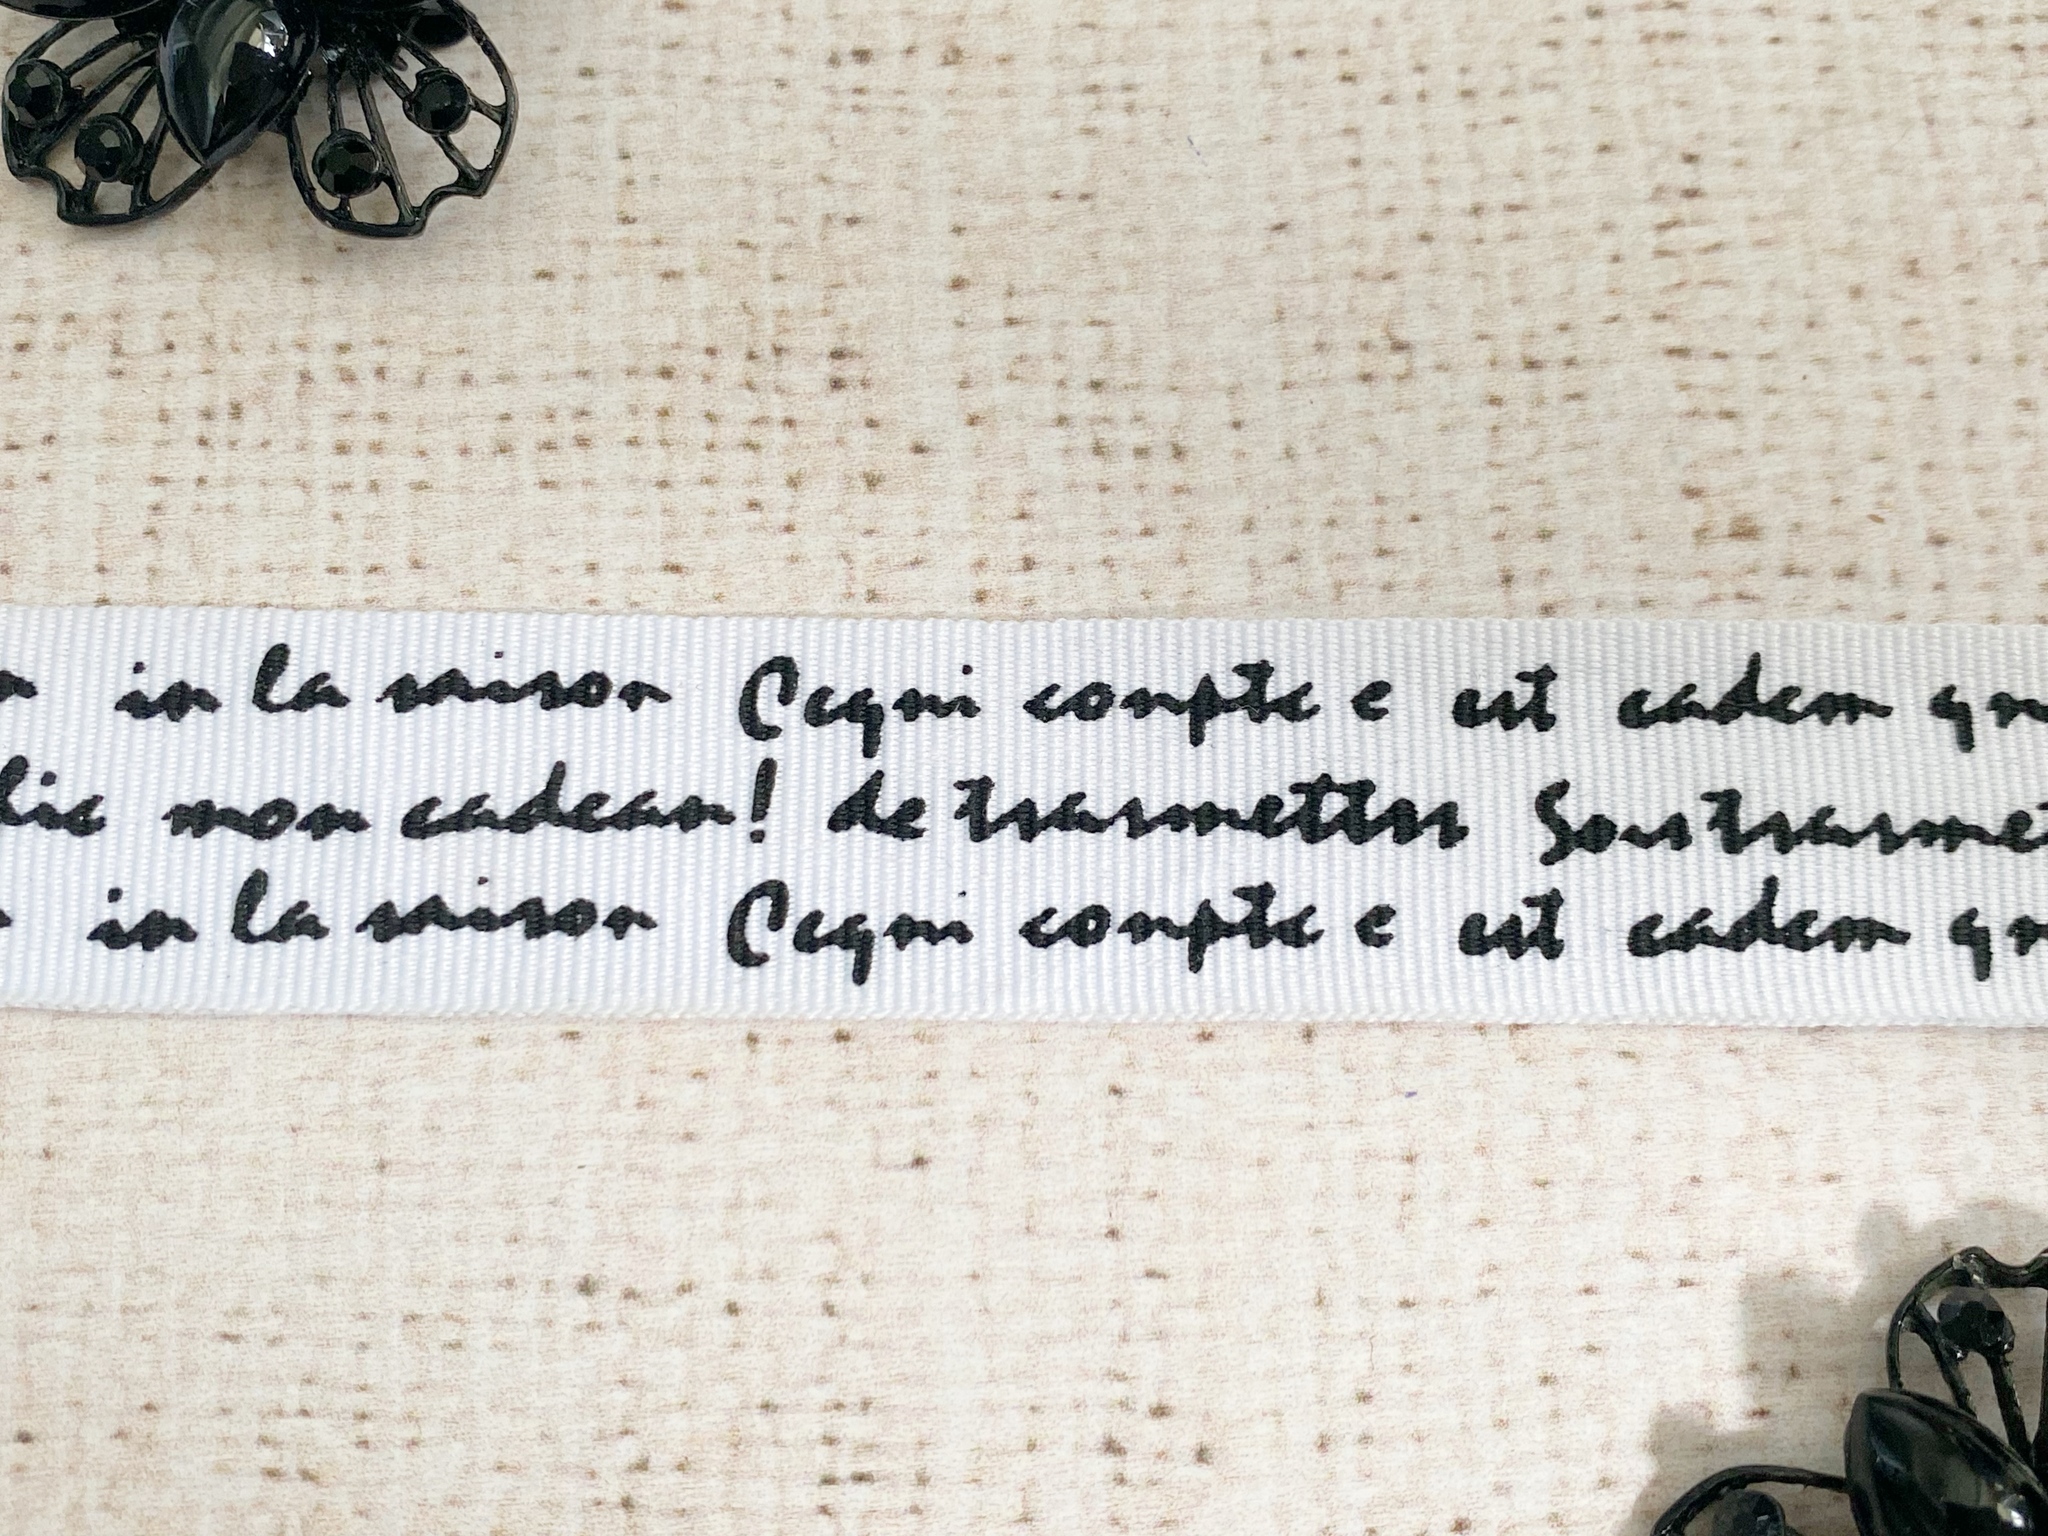 in la saison Cegni conpte e est cadem qn
lic mon cadean! de trasmettrs Sostrasmet
in la saison Cegni conpte e est cadem qn